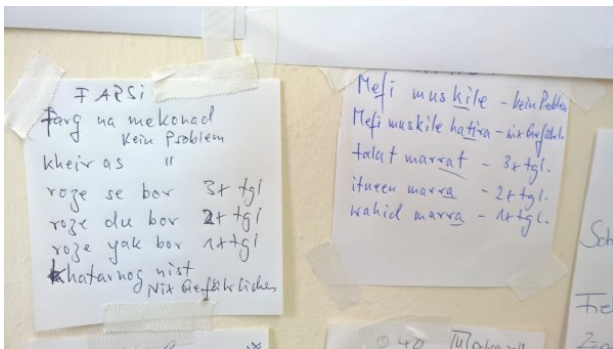 FARSI
Farg na mekonad
Kein Problem
kheir as "
roze se bor 3x tgl
roze du bor 2x tgl
roze yak bor 1x tgl
khatarnog nist
Nix Gefährliches
Mefi muskile - kein Problem
Mefi muskile hatira - nix Gefährl.
talat marrat - 3x tgl.
itneen marra - 2x tgl.
wahid marra - 1x tgl.
Sch